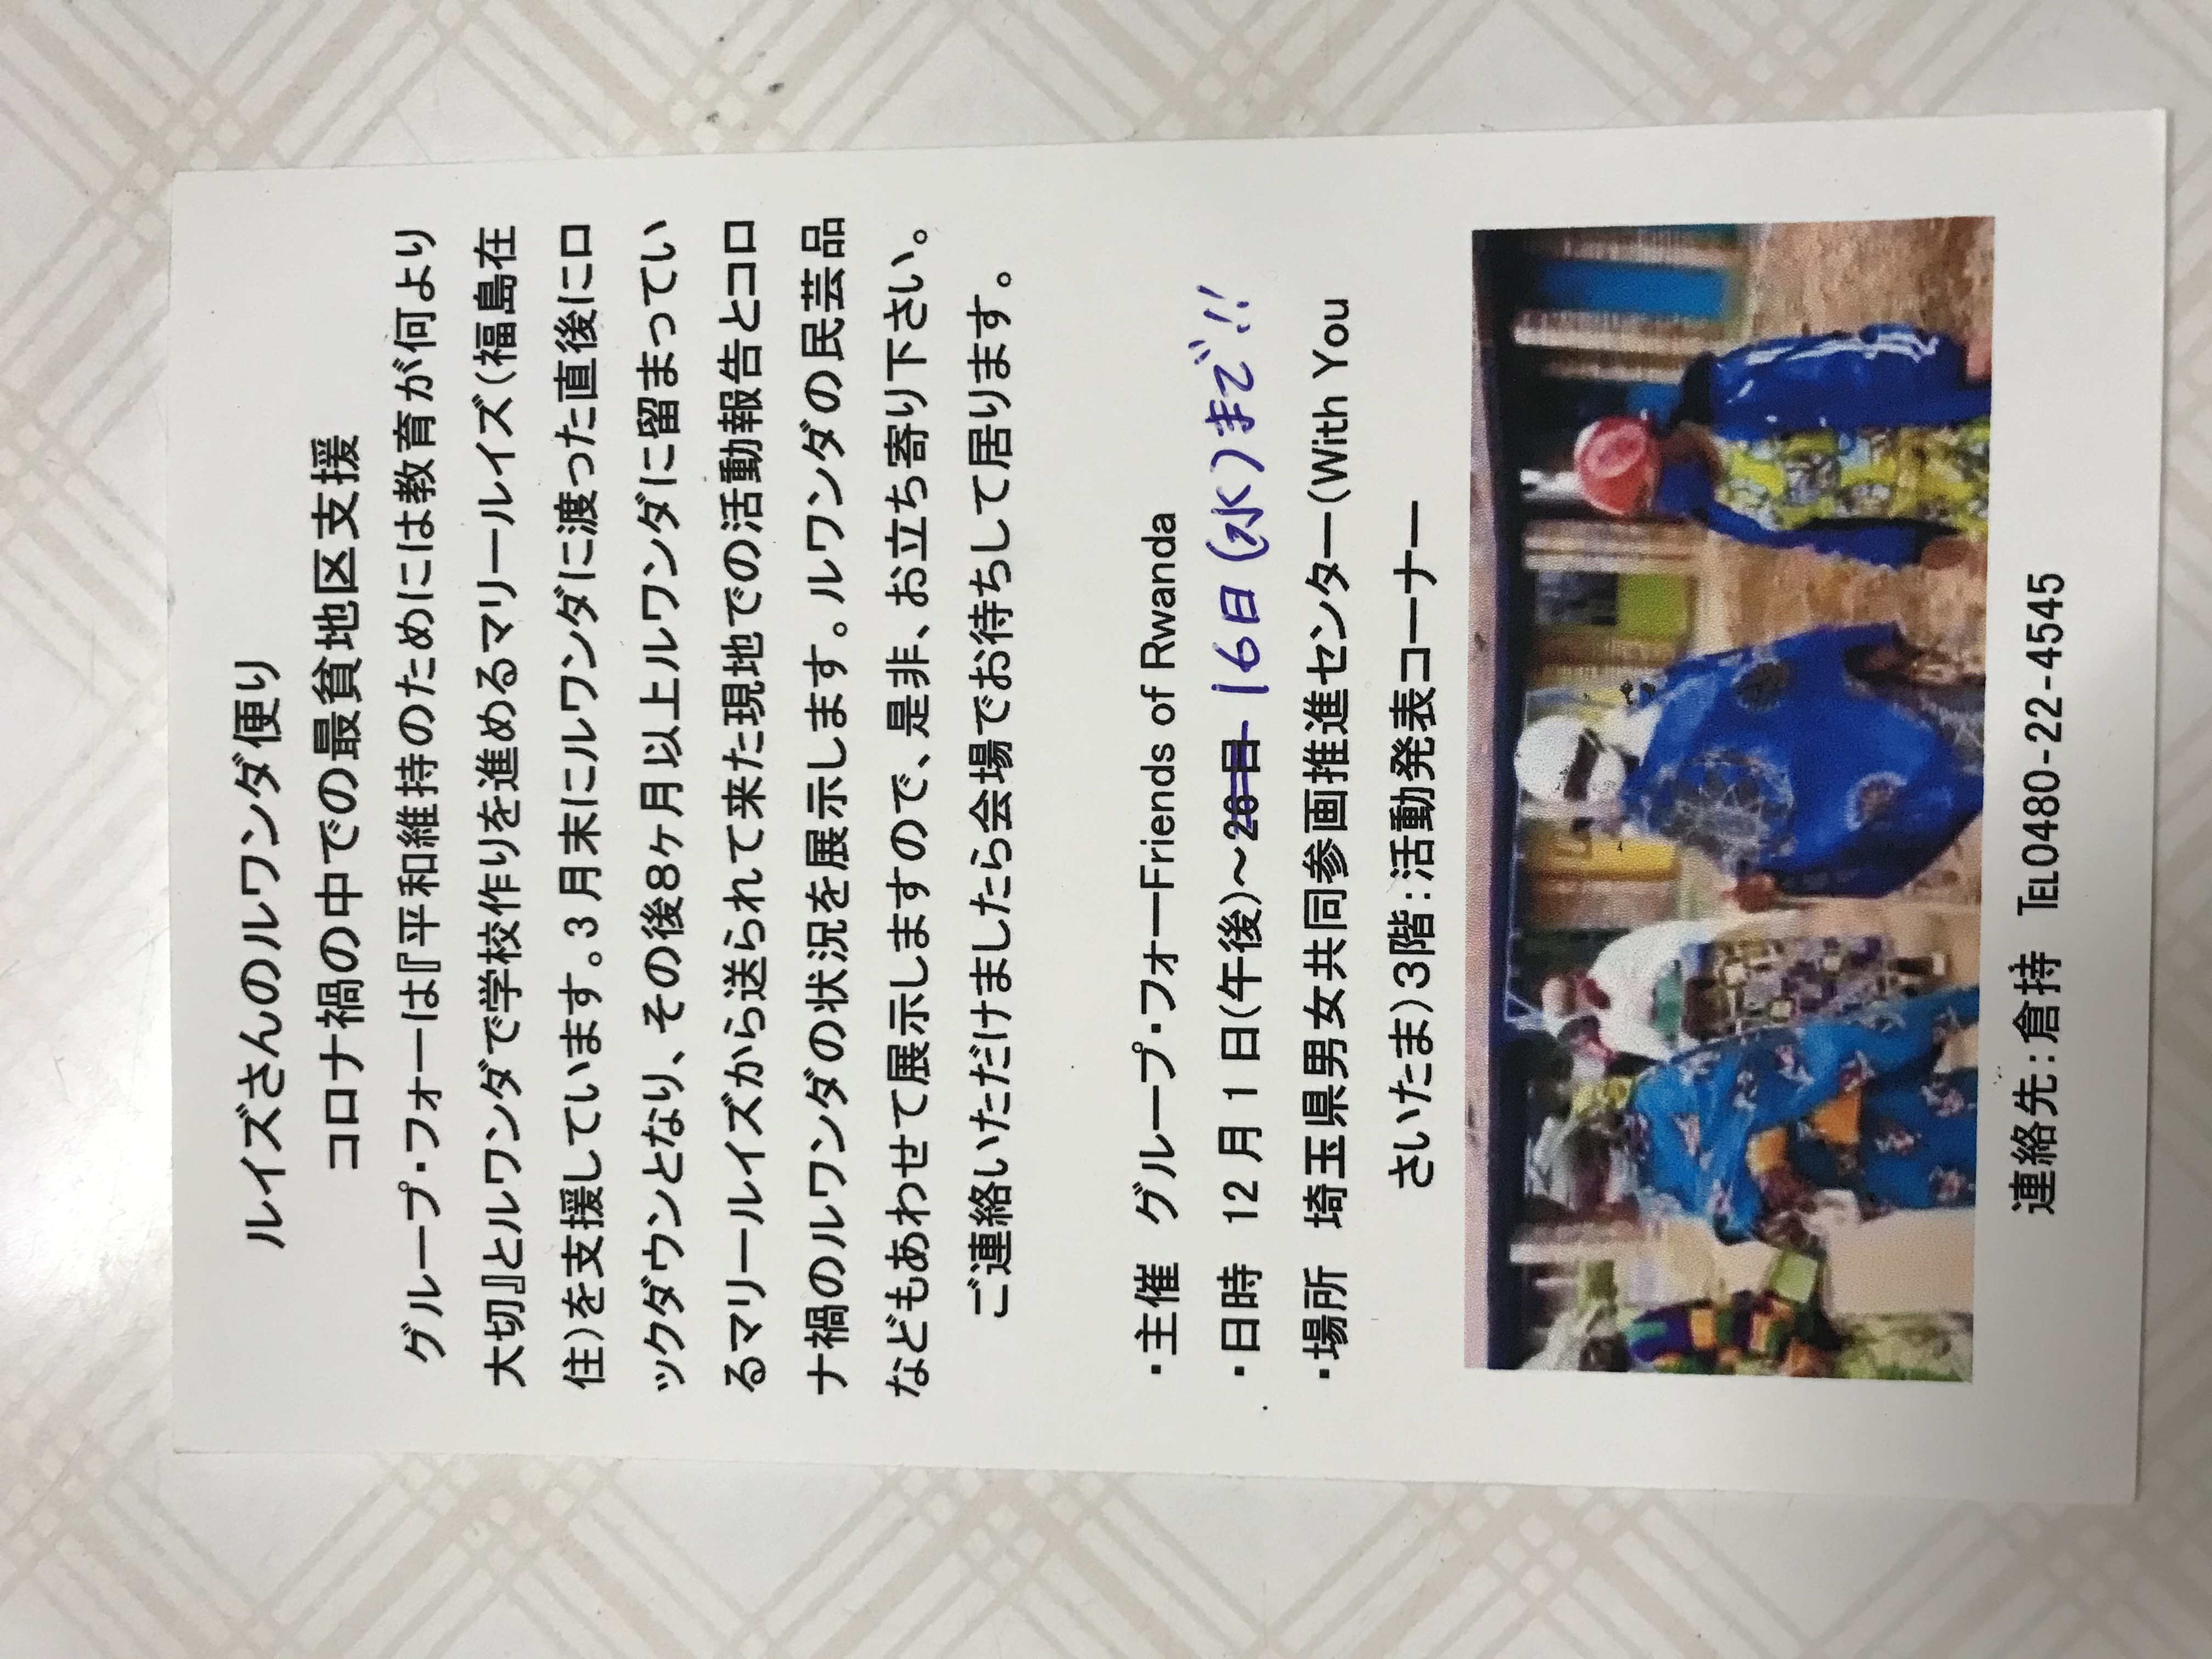 ルイズさんのルワンダ便り
コロナ禍の中での最貧地区支援
グループ・フォーは『平和維持のためには教育が何より
大切』とルワンダで学校作りを進めるマリールイズ(福島在
住)を支援しています。3月末にルワンダに渡った直後にロ
ックダウンとなり、その後8ヶ月以上ルワンダに留まってい
るマリールイズから送られて来た現地での活動報告とコロ
ナ禍のルワンダの状況を展示します。ルワンダの民芸品
などもあわせて展示しますので、是非、お立ち寄り下さい。
ご連絡いただけましたら会場でお待ちして居ります。
・主催 グループ・フォーFriends of Rwanda
・日時 12月1日(午後)～20日 16日(水)まで!!
・場所 埼玉県男女共同参画推進センター(With You
さいたま)3階:活動発表コーナー
連絡先:倉持 ℡0480-22-4545